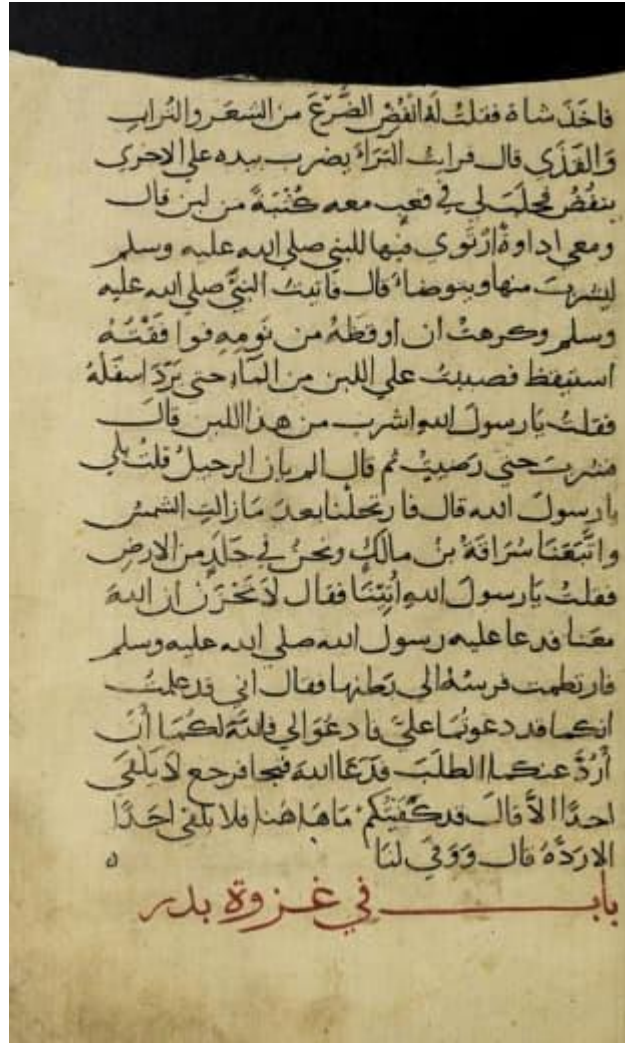 فاخذ شاة فقلت له انفض الضرع من الشعر والتراب
والقذى قال فرايت البراء يضرب بيده علي الاخرى
ينفض فحلب لي في قعب معه كثبة من لبن قال
ومعي اداوة ارتوي فيها للنبي صلي الله عليه وسلم
ليشرب منها ويتوضا قال فاتيت النبي صلي الله عليه
وسلم وكرهت ان اوقظه من نومه فوافقته
استيقظ فصببت علي اللبن من الماء حتي برد اسفله
فقلت يا رسول الله اشرب من هذا اللبن قال
فشرب حتي رضيت ثم قال الم يان الرحيل قلت بلي
يا رسول الله قال فارتحلنا بعد ما زالت الشمس
واتبعنا سراقة بن مالك ونحن في جلد من الارض
فقلت يا رسول الله اتينا فقال لا تحزن ان الله
معنا فدعا عليه رسول الله صلي الله عليه وسلم
فارتطمت فرسه الي بطنها فقال اني قد علمت
انكما قد دعوتما علي فادعوا لي فالله لكما ان
ارد عنكما الطلب فدعا الله فنجا فرجع لا يلقي
احدا الا قال قد كفيتكم ما هاهنا فلا يلقي احدا
الا رده قال ووفي لنا ه
باب في غزوة بدر